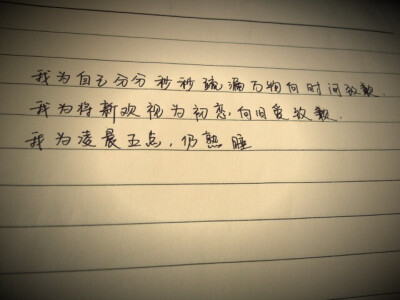 我为自己分分秒秒疏漏万物向时间致歉.
我为将新欢视为初恋,向旧爱致歉.
我为凌晨五点,仍熟睡